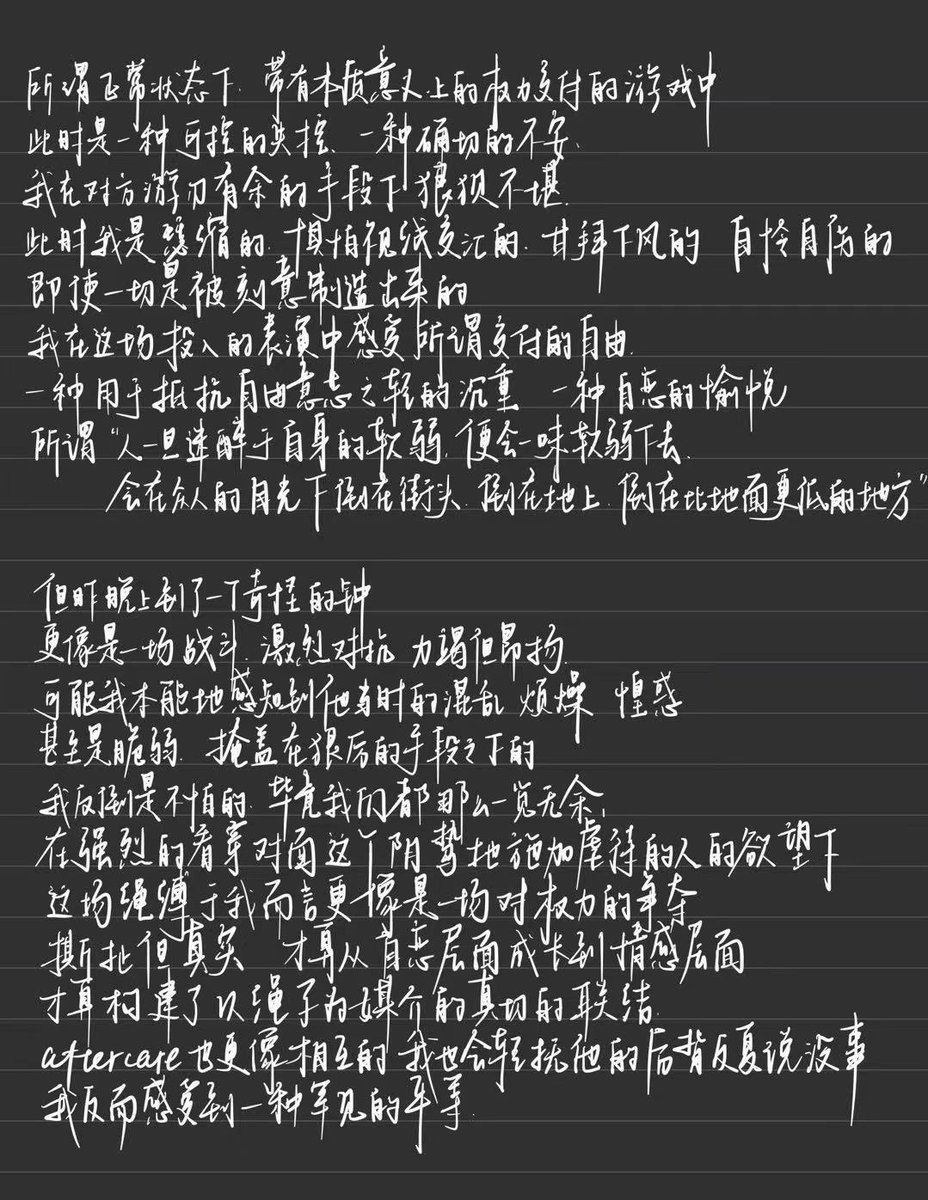 所谓正常状态下 带有本质意义上的权力交付的游戏中
此时是一种可控的失控 一种确切的不安
我在对方游刃有余的手段下狼狈不堪
此时我是瑟缩的 惧怕视线交汇的 甘拜下风的 自怜自伤的
即使一切是被刻意制造出来的
我在这场投入的表演中感受所谓交付的自由
一种用于抵抗自由意志之轻的沉重 一种自恋的愉悦
所谓“人一旦迷醉于自身的软弱 便会一味软弱下去
会在众人的目光下倒在街头 倒在地上 倒在比地面更低的地方”
但昨晚上到了一个奇怪的钟
更像是一场战斗 激烈对抗 力竭但昂扬
可能我本能地感知到他当时的混乱 烦燥 惶惑
甚至是脆弱 掩盖在狠厉的手段之下的
我反倒是不怕的 毕竟我们都那么一览无余
在强烈的看穿对面这个阴鸷地施加虐待的人的欲望下
这场绳缚于我而言更像是一场对权力的争夺
撕扯但真实 才算从自恋层面成长到情感层面
才算构建了以绳子为媒介的真切的联结
aftercare也更像相互的 我也会轻抚他的后背反复说没事
我反而感受到一种罕见的平等